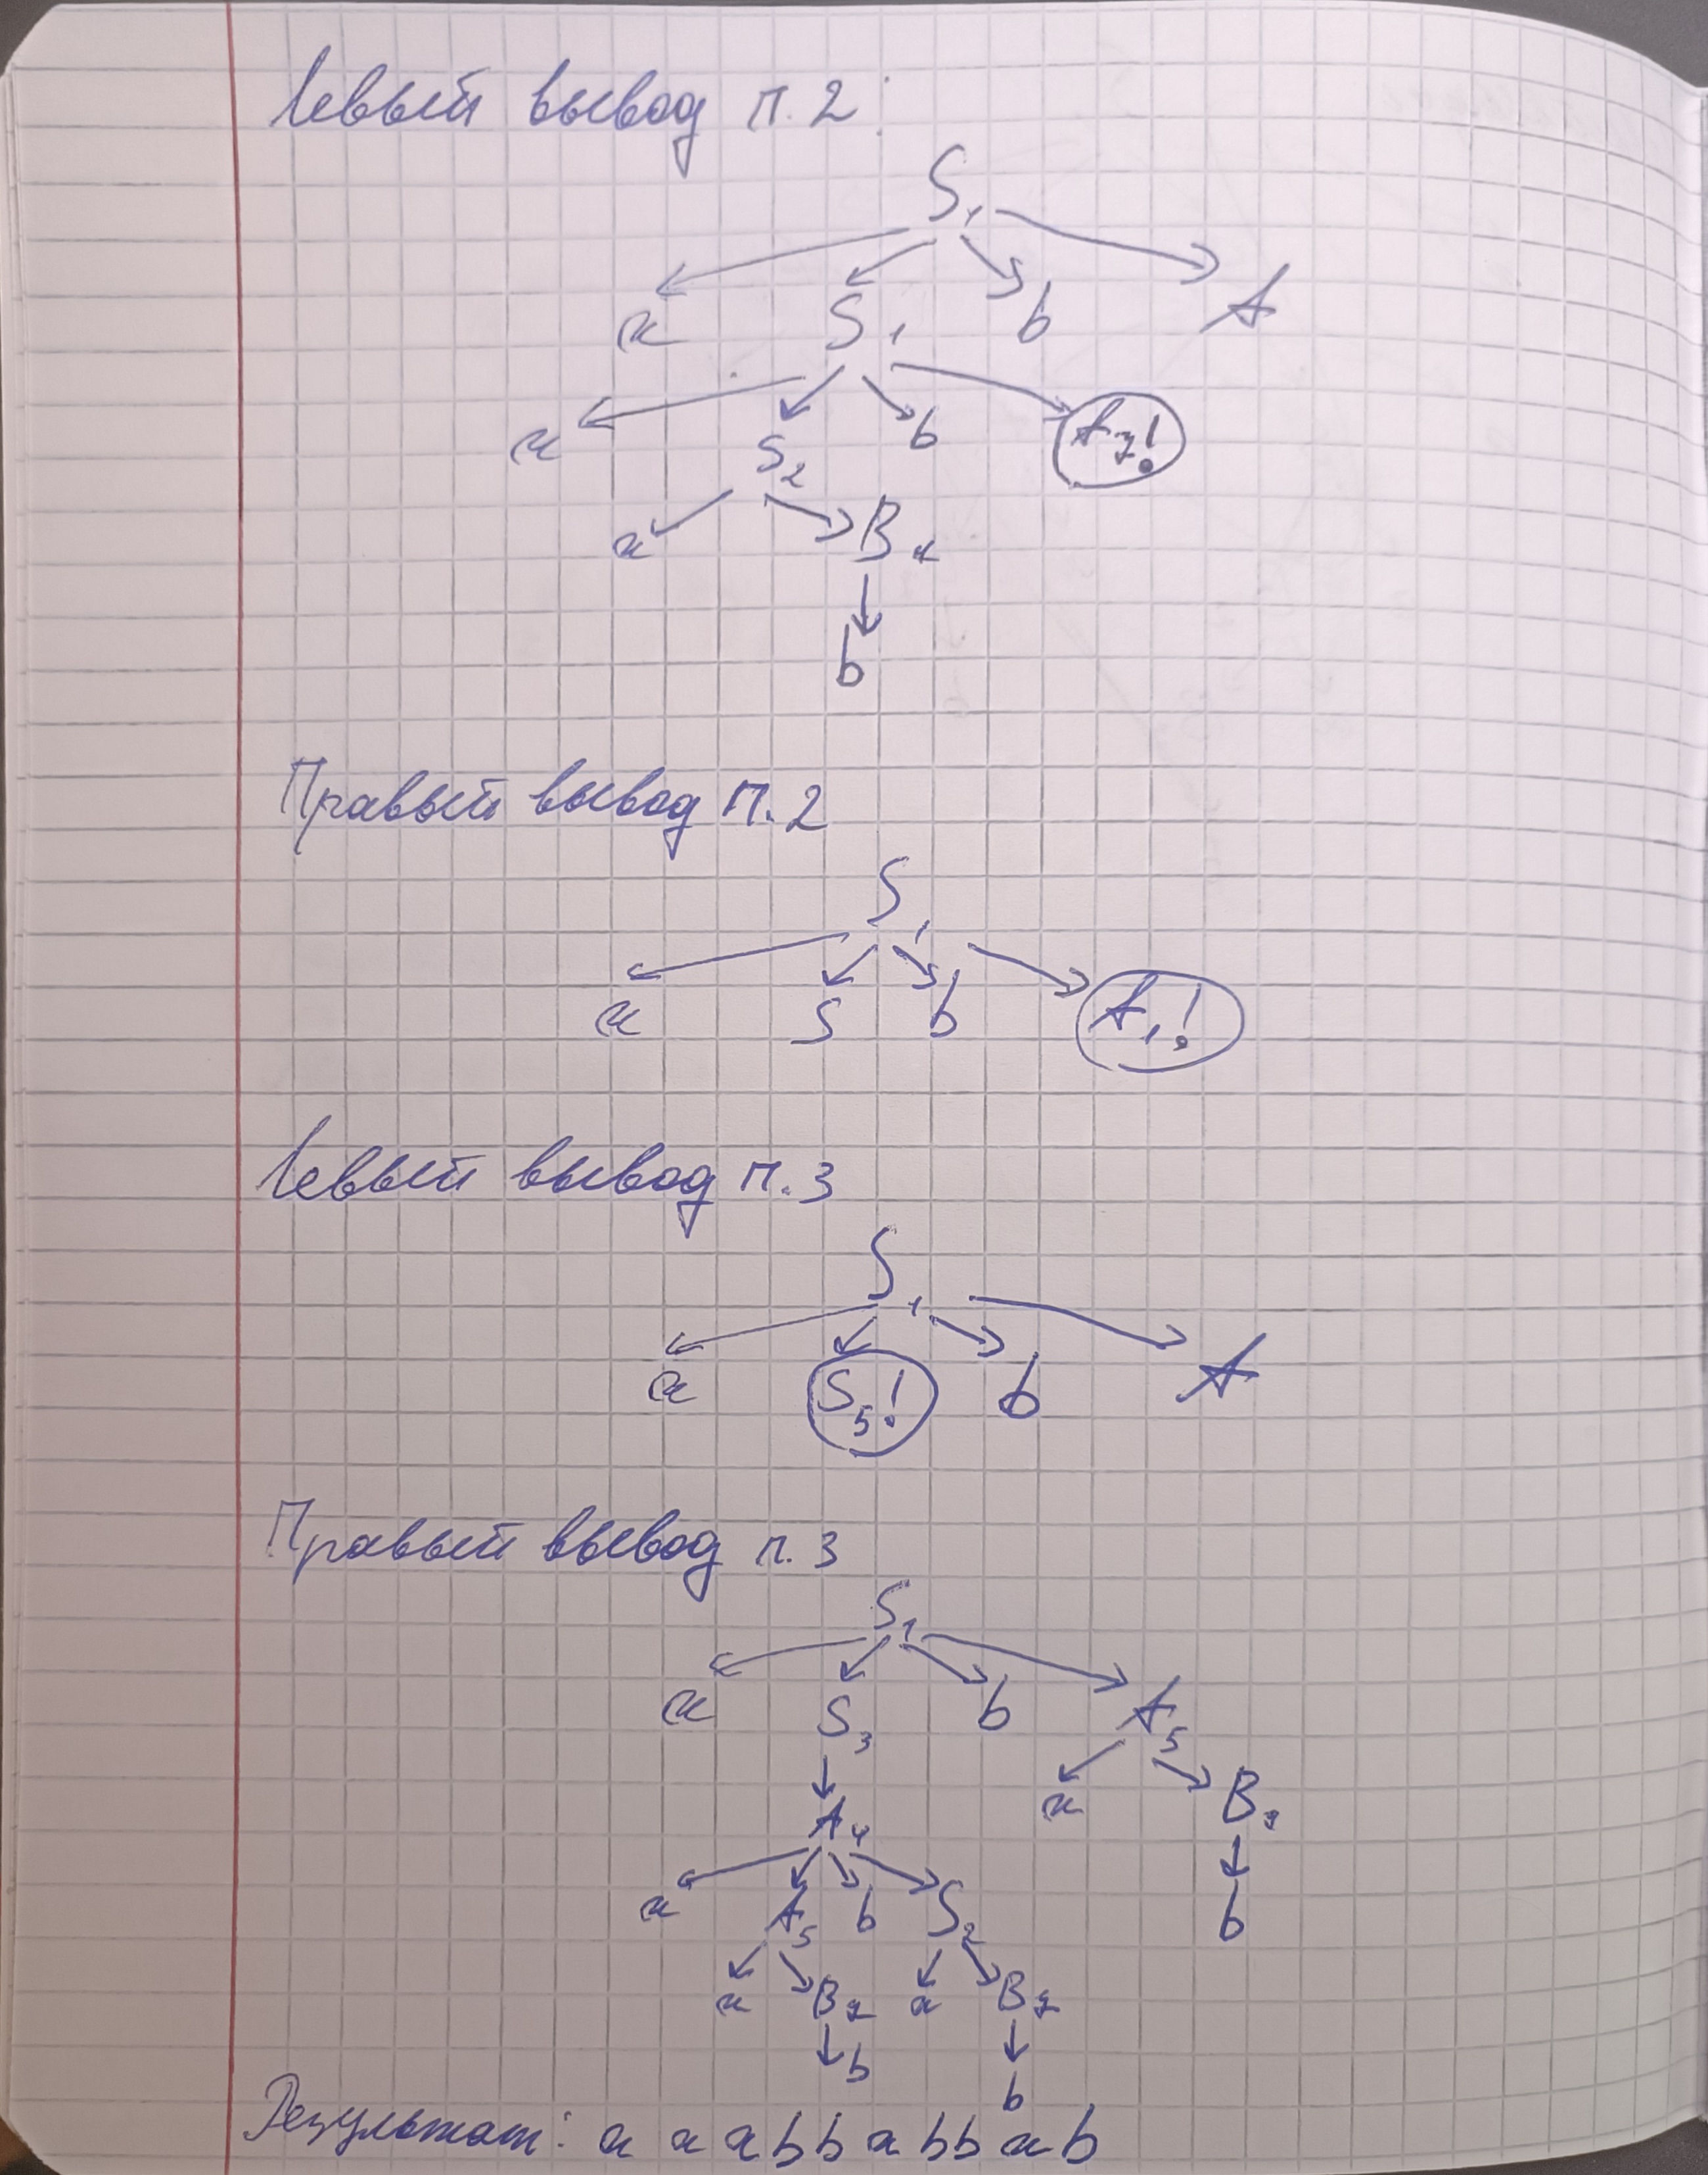 Левый вывод п.2:
S₁
a S₁ b A
a S₂ b A₇!
a B₇
b
Правый вывод п.2
S₁
a S b A₁!
Левый вывод п.3
S₁
a S₅! b A
Правый вывод п.3
S₁
a S₃ b A₅
A₄ a B₇
a A₅ b S₂ b
a B₇ a B₇
b b
Результат: a a a b b a b b a b